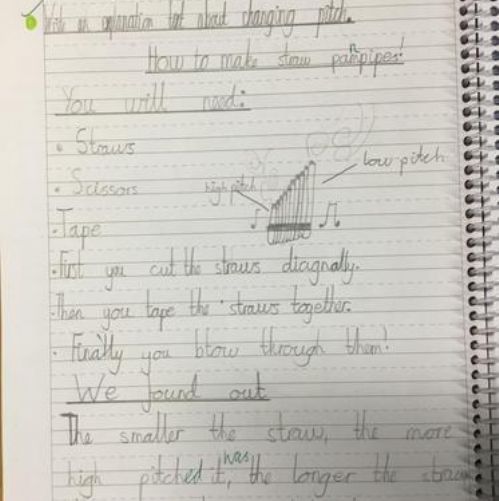 Write an explanation text about changing pitch.
How to make straw panpipes!
You will need:
• Straws
• Scissors
low pitch
high pitch
• Tape
• First you cut the straws diagnally.
• Then you tape the straws together.
• Finally you blow through them!
We found out
The smaller the straw, the more
high pitched it was, the longer the straw